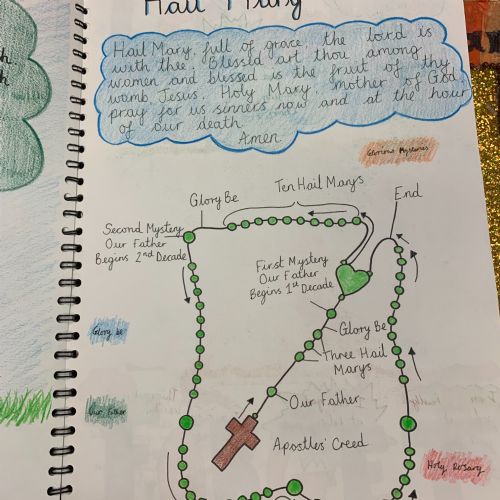 Hail Mary
Hail Mary, full of grace, the lord is
with thee. Blessed art thou among
women and blessed is the fruit of thy
womb, Jesus. Holy Mary, mother of God,
pray for us sinners now and at the hour
of our death.
Amen.
Glorious Mysteries
Ten Hail Marys
Glory Be
End
Second Mystery
Our Father
Begins 2nd Decade
First Mystery
Our Father
Begins 1st Decade
Glory be
Glory Be
Three Hail
Marys
Our Father
Our Father
Apostles' Creed
Holy Rosary